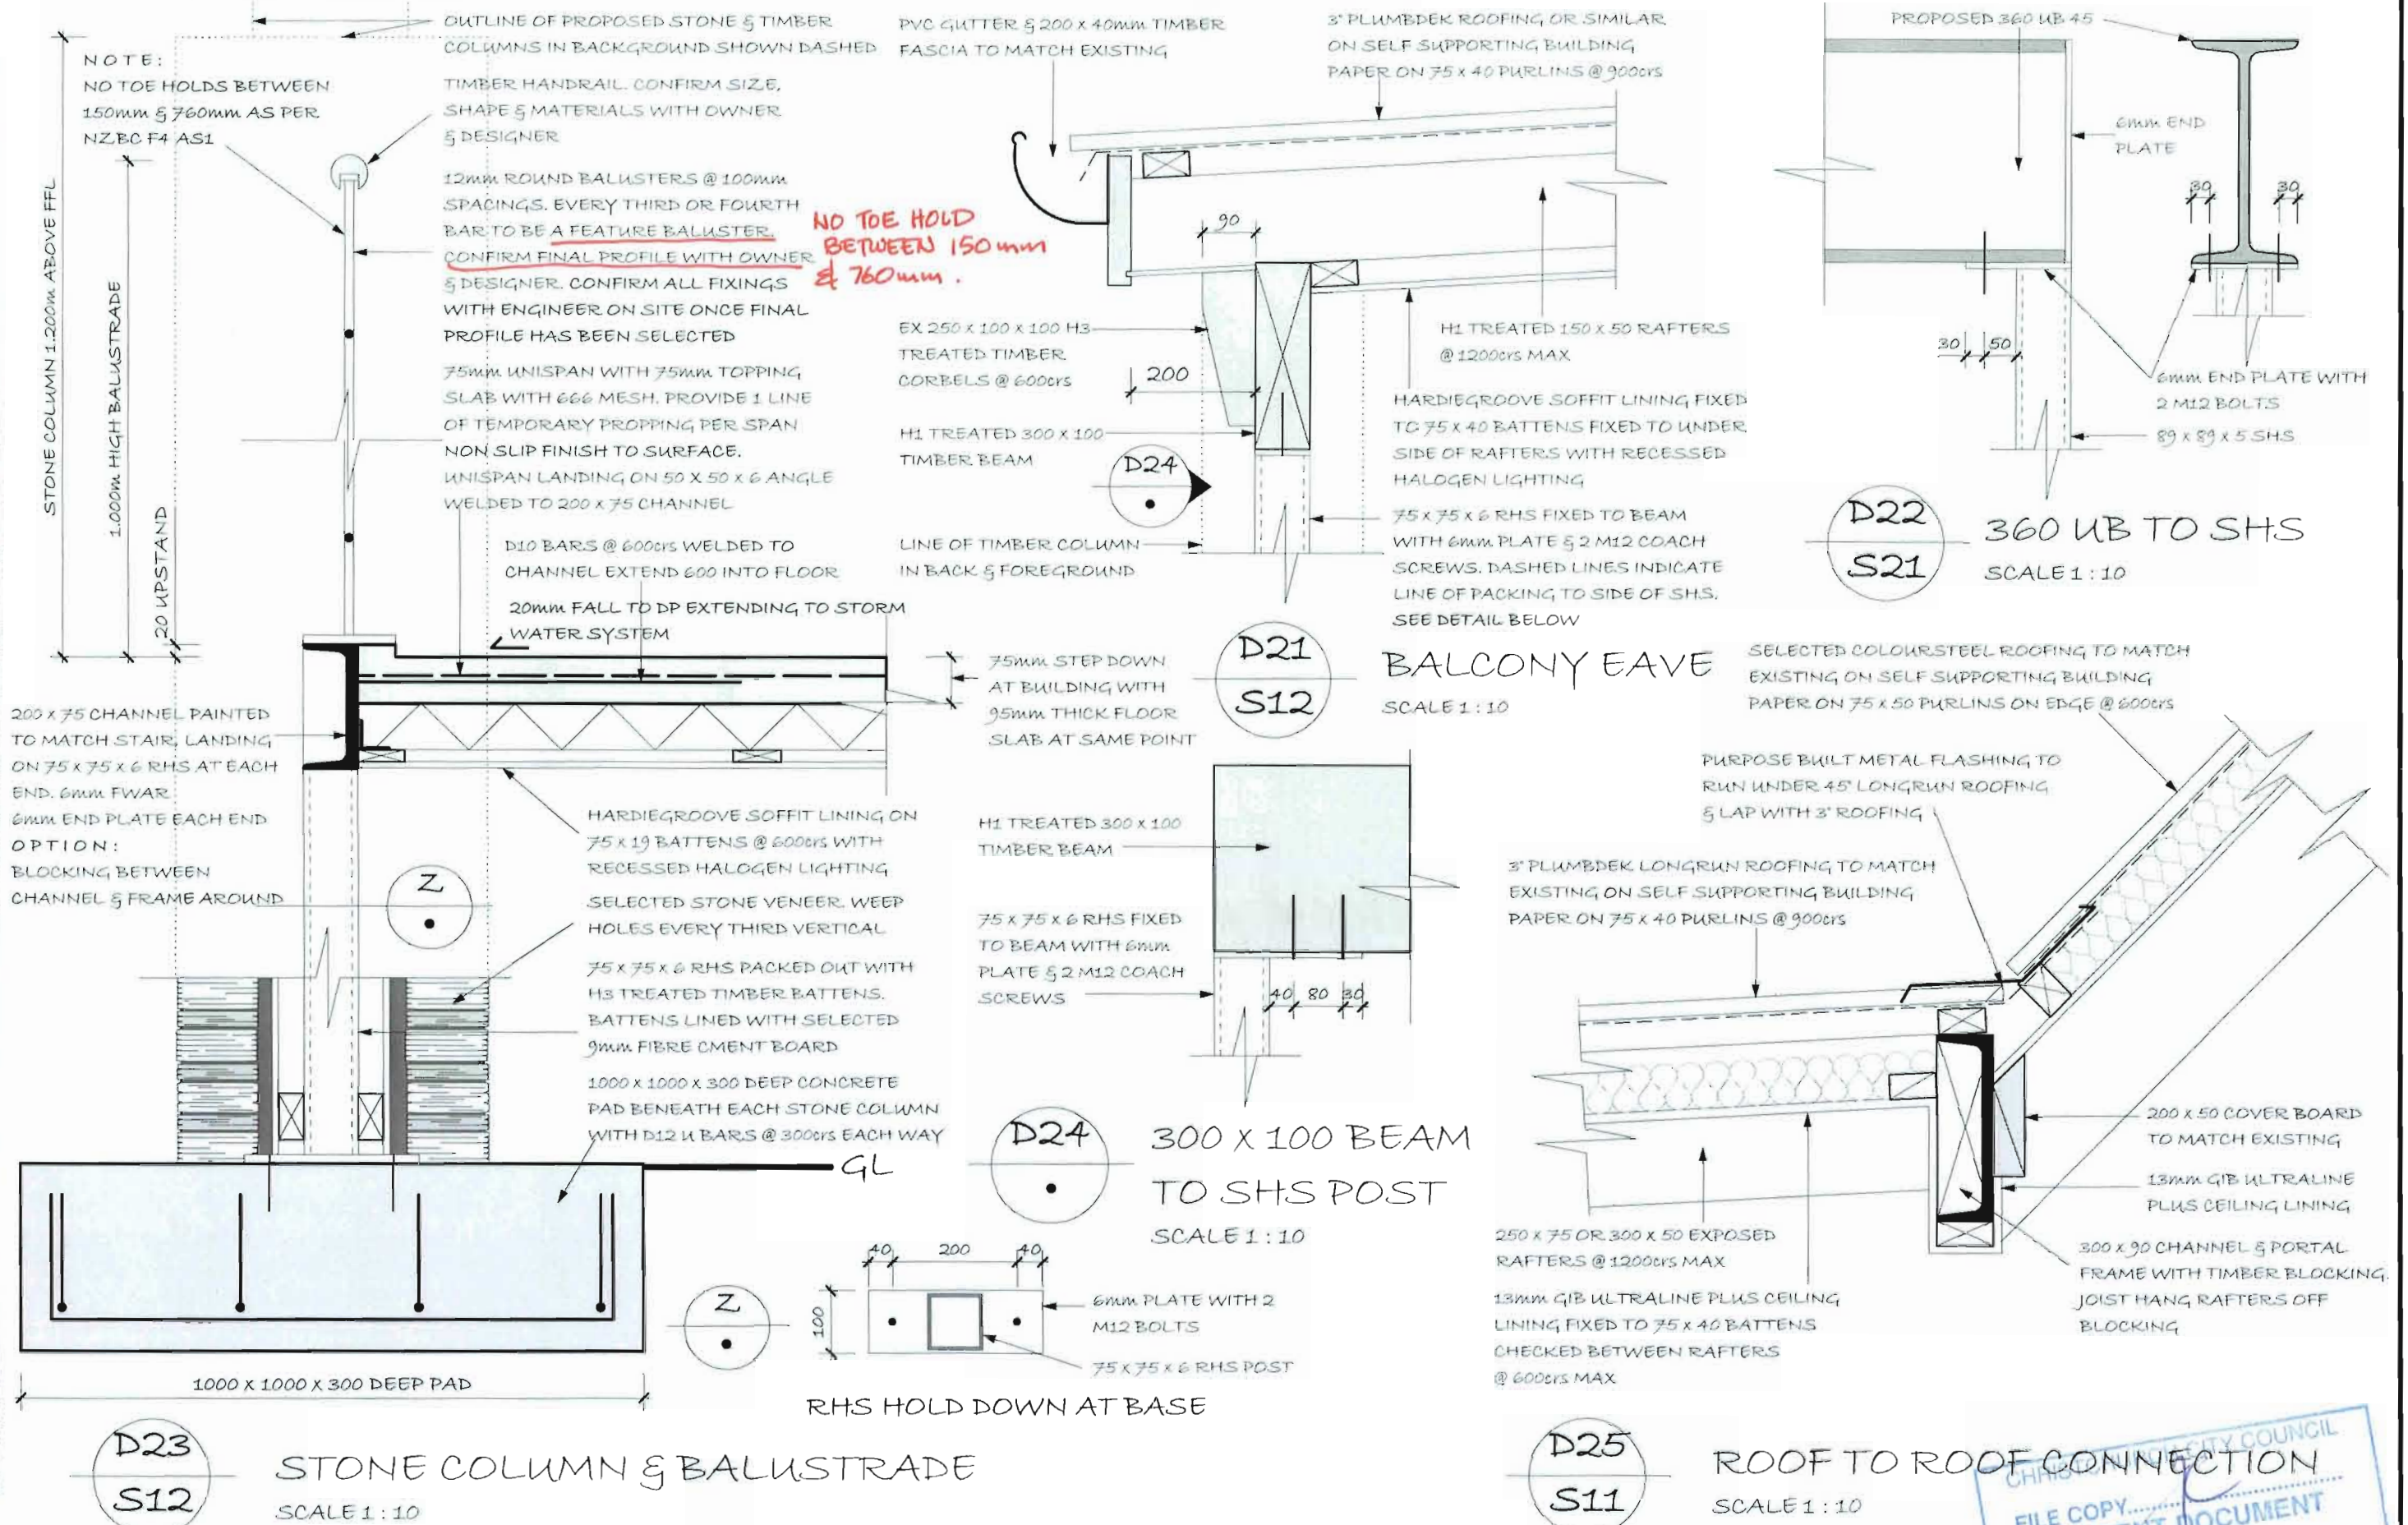 OUTLINE OF PROPOSED STONE & TIMBER
COLUMNS IN BACKGROUND SHOWN DASHED
NOTE:
NO TOE HOLDS BETWEEN
150mm & 760mm AS PER
NZBC F4 AS1
TIMBER HANDRAIL. CONFIRM SIZE,
SHAPE & MATERIALS WITH OWNER
& DESIGNER
12mm ROUND BALUSTERS @ 100mm
SPACINGS. EVERY THIRD OR FOURTH
BAR TO BE A FEATURE BALUSTER.
CONFIRM FINAL PROFILE WITH OWNER
& DESIGNER. CONFIRM ALL FIXINGS
WITH ENGINEER ON SITE ONCE FINAL
PROFILE HAS BEEN SELECTED
NO TOE HOLD
BETWEEN 150mm
& 760mm.
75mm UNISPAN WITH 75mm TOPPING
SLAB WITH 666 MESH. PROVIDE 1 LINE
OF TEMPORARY PROPPING PER SPAN
NON SLIP FINISH TO SURFACE.
UNISPAN LANDING ON 50 X 50 x 6 ANGLE
WELDED TO 200 x 75 CHANNEL
D10 BARS @ 600crs WELDED TO
CHANNEL EXTEND 600 INTO FLOOR
20mm FALL TO DP EXTENDING TO STORM
WATER SYSTEM
STONE COLUMN 1.200m ABOVE FFL
1.000m HIGH BALUSTRADE
20 UPSTAND
75mm STEP DOWN
AT BUILDING WITH
95mm THICK FLOOR
SLAB AT SAME POINT
200 x 75 CHANNEL PAINTED
TO MATCH STAIR, LANDING
ON 75 x 75 x 6 RHS AT EACH
END. 6mm FWAR
6mm END PLATE EACH END
OPTION:
BLOCKING BETWEEN
CHANNEL & FRAME AROUND
Z
HARDIEGROOVE SOFFIT LINING ON
75 x 19 BATTENS @ 600crs WITH
RECESSED HALOGEN LIGHTING
SELECTED STONE VENEER. WEEP
HOLES EVERY THIRD VERTICAL
75 x 75 x 6 RHS PACKED OUT WITH
H3 TREATED TIMBER BATTENS.
BATTENS LINED WITH SELECTED
9mm FIBRE CMENT BOARD
1000 x 1000 x 300 DEEP CONCRETE
PAD BENEATH EACH STONE COLUMN
WITH D12 U BARS @ 300crs EACH WAY
GL
1000 X 1000 X 300 DEEP PAD
D23
S12
STONE COLUMN & BALUSTRADE
SCALE 1 : 10
PVC GUTTER & 200 x 40mm TIMBER
FASCIA TO MATCH EXISTING
3° PLUMBDEK ROOFING OR SIMILAR
ON SELF SUPPORTING BUILDING
PAPER ON 75 x 40 PURLINS @ 900crs
90
200
EX 250 x 100 x 100 H3
TREATED TIMBER
CORBELS @ 600crs
H1 TREATED 300 x 100
TIMBER BEAM
D24
LINE OF TIMBER COLUMN
IN BACK & FOREGROUND
H1 TREATED 150 x 50 RAFTERS
@ 1200crs MAX
HARDIEGROOVE SOFFIT LINING FIXED
TO 75 x 40 BATTENS FIXED TO UNDER
SIDE OF RAFTERS WITH RECESSED
HALOGEN LIGHTING
75 x 75 x 6 RHS FIXED TO BEAM
WITH 6mm PLATE & 2 M12 COACH
SCREWS. DASHED LINES INDICATE
LINE OF PACKING TO SIDE OF SHS.
SEE DETAIL BELOW
D21
S12
BALCONY EAVE
SCALE 1 : 10
PROPOSED 360 UB 45
6mm END
PLATE
30
30
30
50
6mm END PLATE WITH
2 M12 BOLTS
89 x 89 x 5 SHS
D22
S21
360 UB TO SHS
SCALE 1 : 10
H1 TREATED 300 x 100
TIMBER BEAM
75 x 75 x 6 RHS FIXED
TO BEAM WITH 6mm
PLATE & 2 M12 COACH
SCREWS
40
80
30
D24
300 X 100 BEAM
TO SHS POST
SCALE 1 : 10
40
200
40
100
Z
6mm PLATE WITH 2
M12 BOLTS
75 x 75 x 6 RHS POST
RHS HOLD DOWN AT BASE
SELECTED COLOURSTEEL ROOFING TO MATCH
EXISTING ON SELF SUPPORTING BUILDING
PAPER ON 75 x 50 PURLINS ON EDGE @ 600crs
PURPOSE BUILT METAL FLASHING TO
RUN UNDER 45° LONGRUN ROOFING
& LAP WITH 3° ROOFING
3° PLUMBDEK LONGRUN ROOFING TO MATCH
EXISTING ON SELF SUPPORTING BUILDING
PAPER ON 75 x 40 PURLINS @ 900crs
200 x 50 COVER BOARD
TO MATCH EXISTING
13mm GIB ULTRALINE
PLUS CEILING LINING
300 x 90 CHANNEL & PORTAL
FRAME WITH TIMBER BLOCKING.
JOIST HANG RAFTERS OFF
BLOCKING
250 x 75 OR 300 x 50 EXPOSED
RAFTERS @ 1200crs MAX
13mm GIB ULTRALINE PLUS CEILING
LINING FIXED TO 75 x 40 BATTENS
CHECKED BETWEEN RAFTERS
@ 600crs MAX
D25
S11
ROOF TO ROOF CONNECTION
SCALE 1 : 10
CHRISTCHURCH CITY COUNCIL
FILE COPY
DOCUMENT